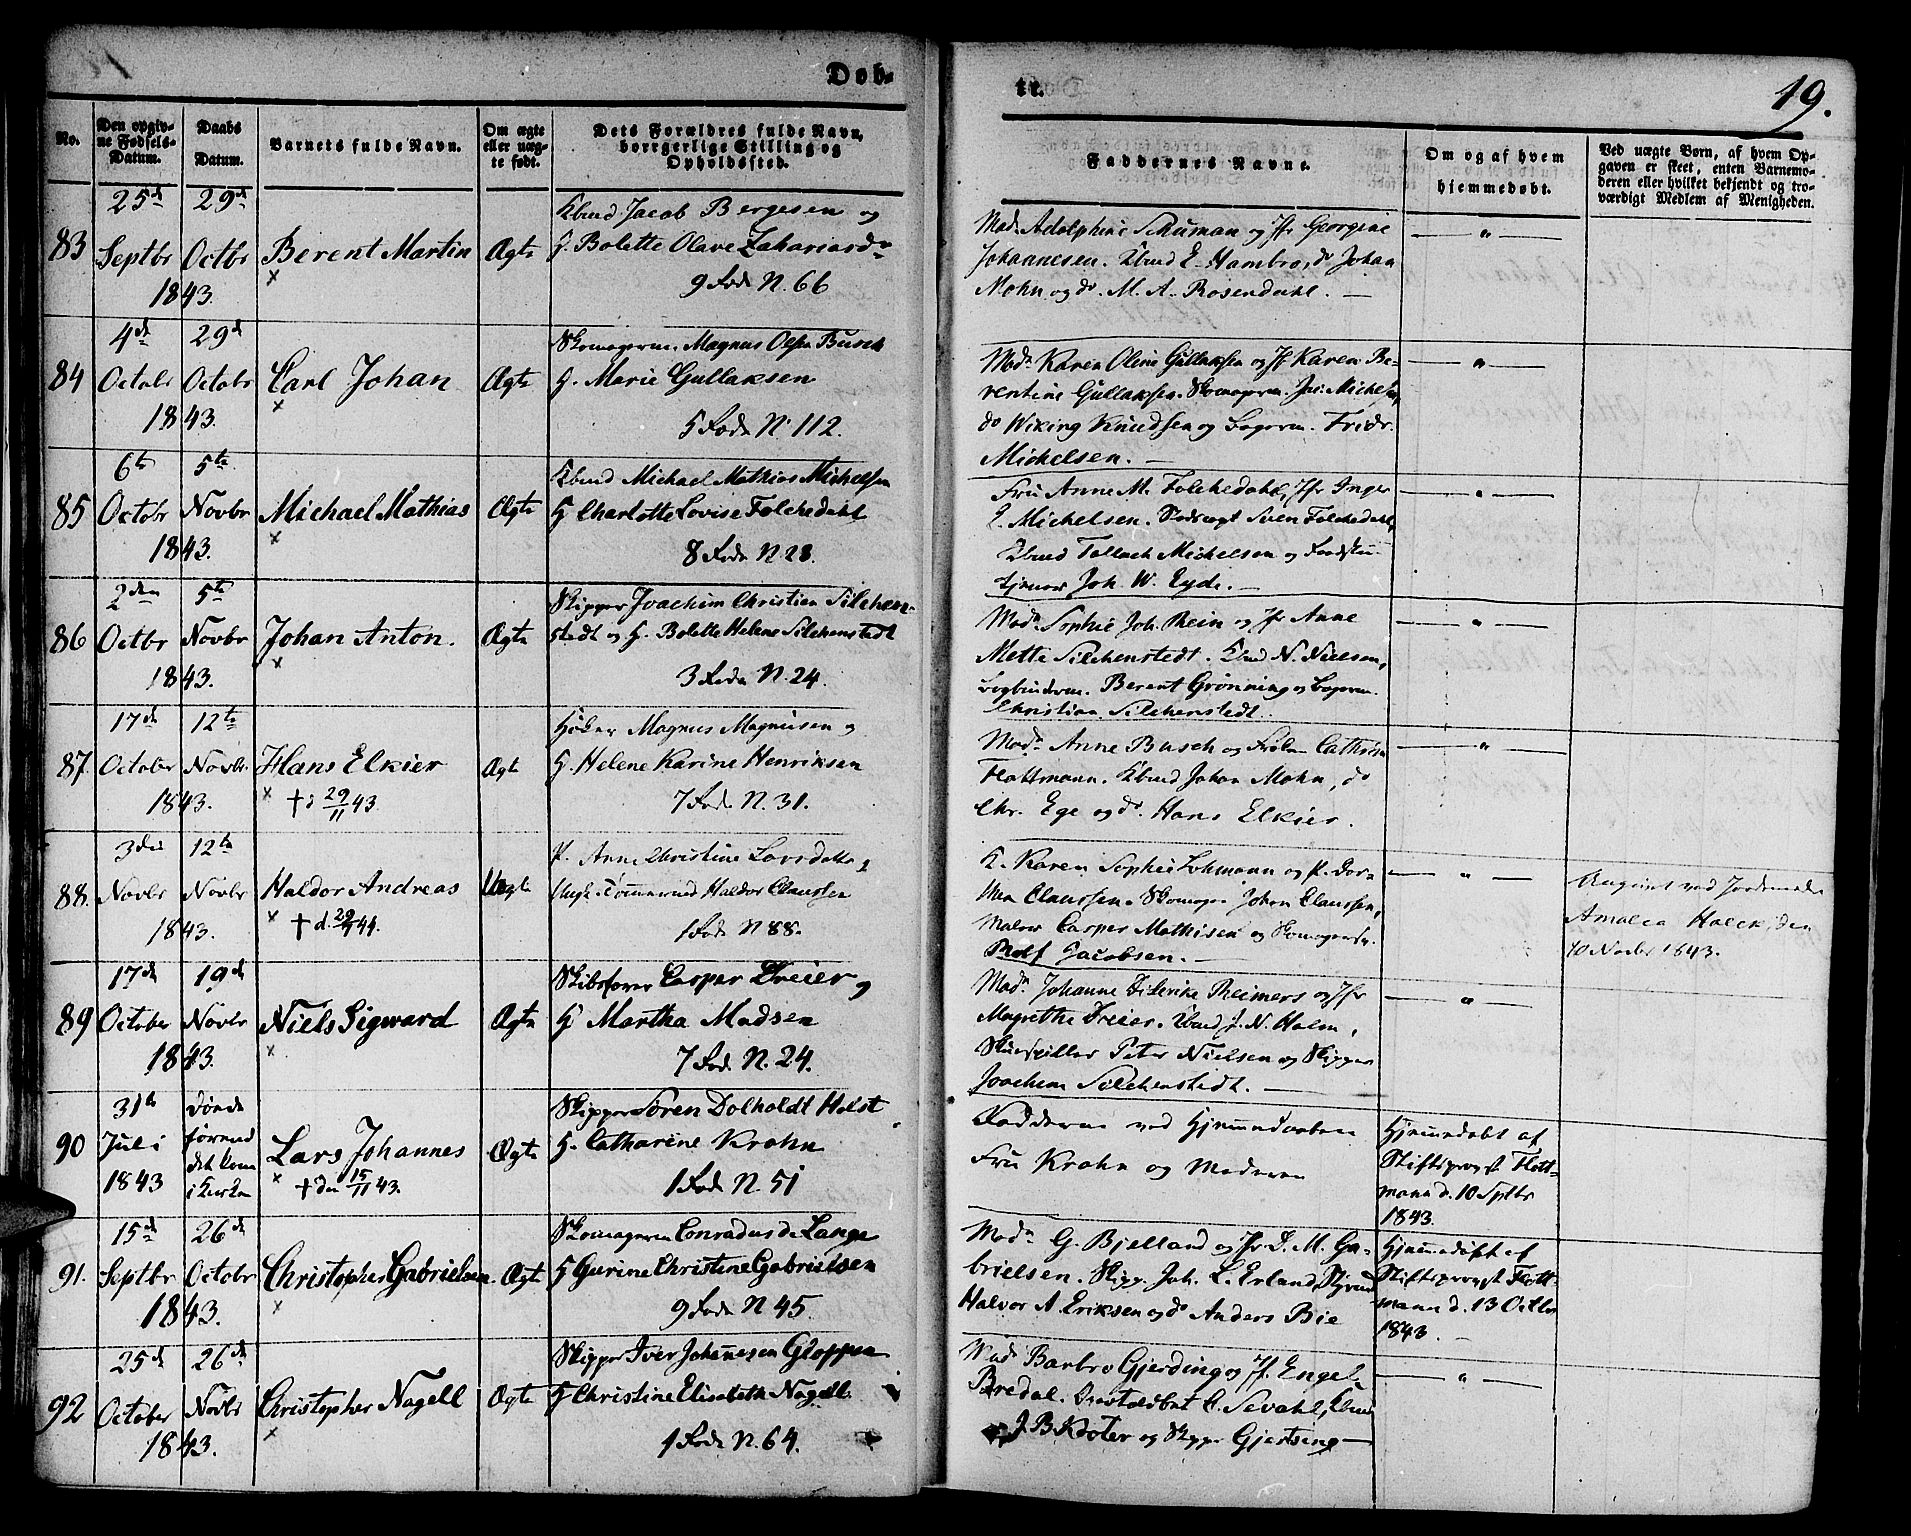 Døb-
No.
Den opgiv-
ne Fødsels-
Datum.
Daabs
Datum.
Barnets fulde Navn.
Om ægte
eller uæg-
te født.
Dets Forældres fulde Navn,
borgerlige Stilling og
Opholdssted.
83
25de
Septbr
29de
Octbr
1843.
Berent Martin
Ægte
Kbmd Jacob Bergesen og
H. Bolette Olave Zakariasdr
9 Rode N. 66
84
4de
Octobr
29de
Octobr
1843.
Carl Johan
Ægte
Skomagerm. Magnus Olsen Busch
H. Marie Gullaksen
5 Rode N. 112.
85
6te
Octobr
5te
Novbr
1843.
Michael Mathias
Ægte
Kbmd Michael Mathias Michelsen
H Charlotte Lovise Folchedahl
8 Rode N. 28.
86
2den
Octbr
5te
Novbr
1843.
Johan Anton.
Ægte
Skipper Joachim Christian Silchen-
stedt og H. Bolette Helene Silchenstedt
3 Rode N. 24.
87.
17de
October
12te
Novbr.
1843.
Hans Elkier
† d 29/11 43.
Ægte
Høker Magnus Magnusen og
H. Helene Karine Henriksen
7 Rode N. 31.
88.
3die
Novbr
12te
Novbr
1843.
Haldor Andreas
Uægte
P. Anne Christine Larsdatter
Ungk. Tømmermd Haldor Claussen
1 Rode N 88.
89
17de
October
19de
Novbr
1843.
Niels Sigward
Ægte
Skibsfører Casper Dreier og
H Martha Madsen
7 Rode N. 24.
90
31te
Juli
1843
døøde
førend
det kom
i Kirken
Lars Johannes
† den 15/11 43.
Ægte
Skipper Søren Dolholdt Holst
H. Catharine Krohn
1 Rode N. 51
91.
15de
Septbr
26de
Octobr
1843.
Christopher Gabrielsen.
Ægte
Skomagerm Conradus de Lange
H Gurine Christine Gabrielsen
9 Rode N 45.
92
25de
October
26de
Novbr
1843.
Christopher Nagell
Ægte
Skipper Iver Johannesen Gloppen
H Christine Elisabeth Nagell
1 Rode N. 64.
te.
19.
Faddernes Navne.
Om og af hvem
hjemmedøbt.
Ved uægte Børn, af hvem Op-
gaven er skeet, enten Barnemo-
deren eller hvilket bekjendt og tro-
værdigt Medlem af Menigheden.
Mad. Adolphine Schuman og Jfr Georgine
Johannesen. Kbmd E. Hambro, do Johan
Mohn og do. M. A. Rosendahl.
Mad. Karen Oline Gullaksen og Jf Karen Be-
rentine Gullaksen. Skomagerm. Jac. Michelsen,
do Wiking Knudsen og Bagerm. Fridr.
Michelsen.
Fru Anne M. Folchedahl, Jfr Inger
E. Michelsen. Sven Folchedahl,
Kbmd Tollach Michelsen og
Joh. W. Eyde.
Mad. Sophie Joh. Rein og Jfr Anne
Mette Silchenstedt. Kbmd N. Nielsen,
Bogbinderm. Berent Grønning og Bagerm.
Christian Silchenstedt.
Mad. Anne Busch og Frøken Cathrine
Flottmann. Kbmd Johan Mohn, do
Chr. Ege og do. Hans Elkier.
K. Karen Sophie Lohmann og P. Doro-
thea Claussen. Skomager Johan Claussen,
Maler Casper Mathisen og Skomagersv.
Rolf Jacobsen.
Angivet ved Jordemoder
Amalia Holck, den
10 Novbr 1843.
Mad. Johanne Diderike Reimers og Jfr
Magrethe Dreier. Kbmd J. N. Holm,
Skuespiller Peter Nielsen og Skipper
Joachim Silchenstedt.
Fadderne ved Hjemmedaaben
Fru Krohn og Moderen
Hjemmedøbt af
Stiftsprovst Flott-
mann d. 10 Septbr
1843.
Mad. G. Bjelland og Jfr D. M. Ga-
brielsen. Skipp. Joh. L. Erland, Styrmd
Halvor A. Eriksen og do Anders Bie
Hjemmedøbt af
Stiftsprovst Flott-
mann d. 13 Octbr
1843.
Mad Barbro Gjerding og Jf. Engel
Bredal. C. Sevahl, Kbmd
J. B. Kroter og Skipper Gjertsing